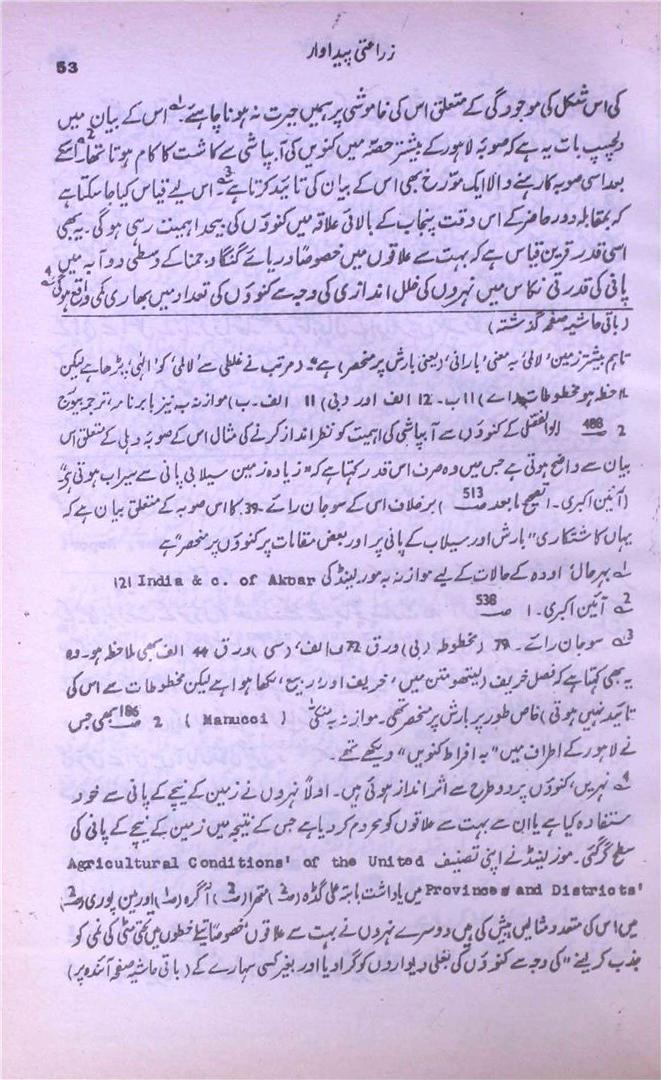 زراعتی پیداوار
53
کی اس شکل کی موجودگی کے متعلق اس کی خاموشی پر ہمیں حیرت نہ ہونا چاہئے۔1 اس کے بیان میں
دلچسپ بات یہ ہے کہ صوبہ لاہور کے بیشتر حصہ میں کنویں کی آبپاشی سے کاشت کا کام ہوتا تھا۔2 اسکے
بعد اسی صوبہ کا رہنے والا ایک مورخ بھی اس کے بیان کی تائید کرتا ہے۔3 اس لیے قیاس کیا جا سکتا ہے
کہ بمقابلہ دور حاضر کے اس وقت پنجاب کے بالائی علاقہ میں کنوؤں کی بیحد اہمیت رہی ہوگی۔ یہ بھی
اسی قدر قرین قیاس ہے کہ بہت سے علاقوں میں خصوصاً دریائے گنگا و جمنا کے وسطی دوآبہ میں
پانی کی قدرتی نکاس میں نہروں کی خلل اندازی کی وجہ سے کنوؤں کی تعداد میں بھاری کمی واقع ہوئی ہے4
(باقی حاشیہ صفحہ گذشتہ)
تاہم بیشتر زمین 'لالمی' بہ معنی 'بارانی' (یعنی بارش پر منحصر) ہے۔" مرتب نے غلطی سے 'لالمی' کو 'الہٰی' پڑھا ہے لیکن
ملاحظہ ہو مخطوطات (اے) 11 ب۔ 12 الف اور (بی) 11 الف۔ ب) موازنہ بہ نیز بابر نامہ، ترجمہ بیورج
2 صـ 488 ابوالفضل کے کنوؤں سے آبپاشی کی اہمیت کو نظر انداز کرنے کی مثال اس کے صوبہ دہلی کے متعلق اس
بیان سے واضح ہوتی ہے جس میں وہ صرف اس قدر کہتا ہے کہ "زیادہ زمین سیلابی پانی سے سیراب ہوتی ہے"
(آئین اکبری۔ 1 صـ 513) برخلاف اس کے سوجان رائے۔ 39 کا اس صوبہ کے متعلق بیان ہے کہ
یہاں کاشتکاری "بارش اور سیلاب کے پانی پر اور بعض مقامات پر کنوؤں پر منحصر ہے"
1 بہر حال، اودھ کے حالات کے لیے موازنہ بہ مورلینڈ کی India & c. of Akbar 121
2 آئین اکبری۔ 1 صـ 538
3 سوجان رائے۔ 79 (مخطوطہ (بی) ورق 72 الف، (سی) ورق 44 الف بھی ملاحظہ ہو۔ وہ
یہ بھی کہتا ہے کہ فصل خریف (لیتھو متن میں 'خریف اور ربیع' لکھا ہوا ہے لیکن مخطوطات سے اس کی
تائید نہیں ہوتی) خاص طور پر بارش پر منحصر تھی۔ موازنہ بہ (Manucci) 2 صـ 186 بھی جس
نے لاہور کے اطراف میں "بہ افراط کنویں" دیکھے تھے۔
4 نہریں، کنوؤں پر دو طرح سے اثر انداز ہوئی ہیں۔ اولاً نہروں نے زمین کے نیچے کے پانی سے خود
ستفادہ کیا ہے یا ان سے بہت سے علاقوں کو محروم کر دیا ہے جس کے نتیجہ میں زمین کے نیچے کے پانی کی
سطح گر گئی۔ مورلینڈ نے اپنی تصنیف Agricultural Conditions' of the United
Provinces and Districts' میں یاد داشت بابتہ علی گڈھ (صـ2) متھرا (صـ2) آگرہ (صـ1) اور مین پوری (صـ2)
میں اس کی متعدد مثالیں پیش کی ہیں۔ دوسرے نہروں نے بہت سے علاقوں خصوصاً خطوں میں تحتی مٹی کی نمی کو
جذب کر لینے "کی وجہ سے کنوؤں کی بغلی دیواروں کو گرا دیا اور بغیر کسی سہارے کے (باقی حاشیہ صفحہ آئندہ پر)